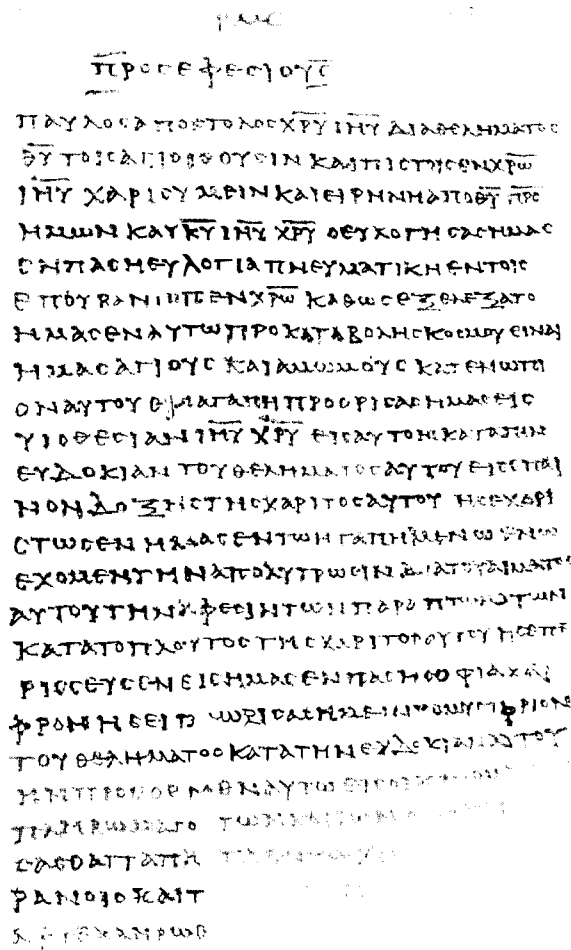 ΡΜϚ
ΠΡΟϹΕΦΕϹΙΟΥϹ
ΠΑΥΛΟϹΑΠΟϹΤΟΛΟϹΧ̅Ρ̅Υ̅Ι̅Η̅Υ̅ΔΙΑΘΕΛΗΜΑΤΟϹ
Θ̅Υ̅ΤΟΙϹΑΓΙΟΙϹΟΥϹΙΝΚΑΙΠΙϹΤΟΙϹΕΝΧ̅Ρ̅Ω̅
Ι̅Η̅Υ̅ΧΑΡΙϹΥΜΕΙΝΚΑΙΕΙΡΗΝΗΑΠΟΘ̅Υ̅Π̅Ρ̅Ϲ̅
ΗΜΩΝΚΑΙΚ̅Υ̅Ι̅Η̅Υ̅Χ̅Ρ̅Υ̅ΟΕΥΛΟΓΗϹΑϹΗΜΑϹ
ΕΝΠΑϹΗΕΥΛΟΓΙΑΠΝΕΥΜΑΤΙΚΗΕΝΤΟΙϹ
ΕΠΟΥΡΑΝΙΟΙϹΕΝΧ̅Ρ̅Ω̅ΚΑΘΩϹΕΞΕΛΕΞΑΤΟ
ΗΜΑϹΕΝΑΥΤΩΠΡΟΚΑΤΑΒΟΛΗϹΚΟϹΜΟΥΕΙΝΑΙ
ΗΜΑϹΑΓΙΟΥϹΚΑΙΑΜΩΜΟΥϹΚΑΤΕΝΩΠΙ
ΟΝΑΥΤΟΥΕΝΑΓΑΠΗΠΡΟΟΡΙϹΑϹΗΜΑϹΕΙϹ
ΥΙΟΘΕϹΙΑΝΙ̅Η̅Υ̅Χ̅Ρ̅Υ̅ΕΙϹΑΥΤΟΝΚΑΤΑΤΗΝ
ΕΥΔΟΚΙΑΝΤΟΥΘΕΛΗΜΑΤΟϹΑΥΤΟΥΕΙϹΕΠΑΙ
ΝΟΝΔΟΞΗϹΤΗϹΧΑΡΙΤΟϹΑΥΤΟΥΗϹΕΧΑΡΙ
ϹΤΩϹΕΝΗΜΑϹΕΝΤΩΗΓΑΠΗΜΕΝΩΕΝΩ
ΕΧΟΜΕΝΤΗΝΑΠΟΛΥΤΡΩϹΙΝΔΙΑΤΟΥΑΙΜΑΤΟϹ
ΑΥΤΟΥΤΗΝΑΦΕϹΙΝΤΩΝΠΑΡΑΠΤΩΜΑΤΩΝ
ΚΑΤΑΤΟΠΛΟΥΤΟϹΤΗϹΧΑΡΙΤΟϹΑΥΤΟΥΗϹΕΠΕ
ΡΙϹϹΕΥϹΕΝΕΙϹΗΜΑϹΕΝΠΑϹΗϹΟΦΙΑΚΑΙ
ΦΡΟΝΗϹΕΙΓΝΩΡΙϹΑϹΗΜΕΙΝΤΟΜΥϹΤΗΡΙΟΝ
ΤΟΥΘΕΛΗΜΑΤΟϹΚΑΤΑΤΗΝΕΥΔΟΚΙΑΝΑΥΤΟΥ
ΗΝΠΡΟΕΘΕΤΟΕΝΑΥΤΩΕΙϹΟΙΚΟΝΟΜ
ΠΛΗΡΩΜΑΤΟ ΤΩΝΚΑΙΡΩΝ
ϹΑϹΘΑΙΤΑΠΑ
ΡΑΝΟΙϹΚΑΙΤ